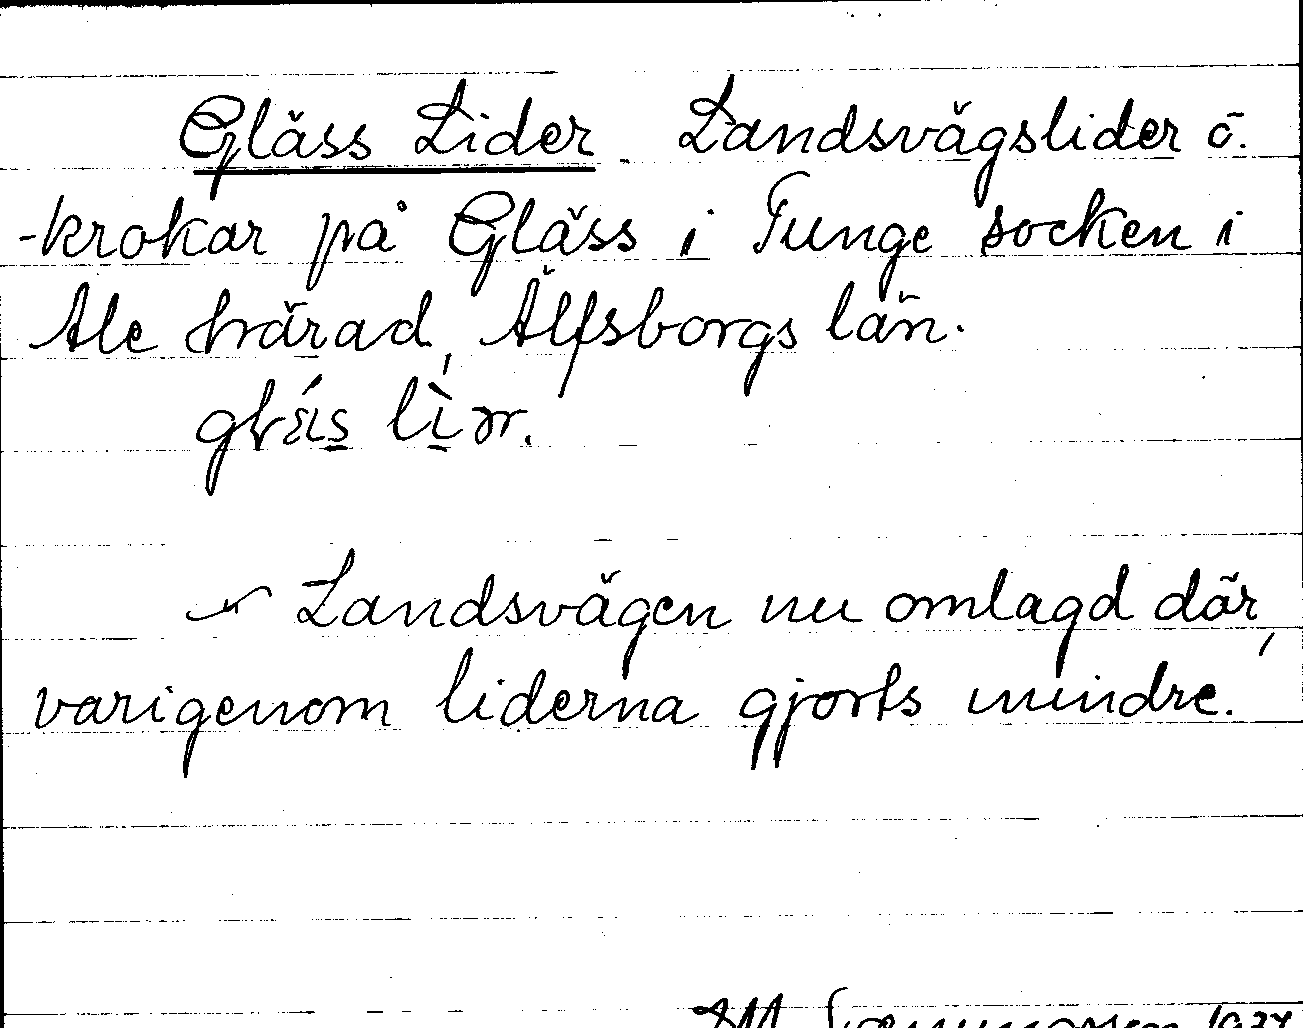 Gläss Lider. Landsvägslider o.
-krokar på Gläss i Tunge socken i
Ale härad, Älfsborgs län.
lìər.
Landsvägen nu omlagd där,
varigenom liderna gjorts mindre.